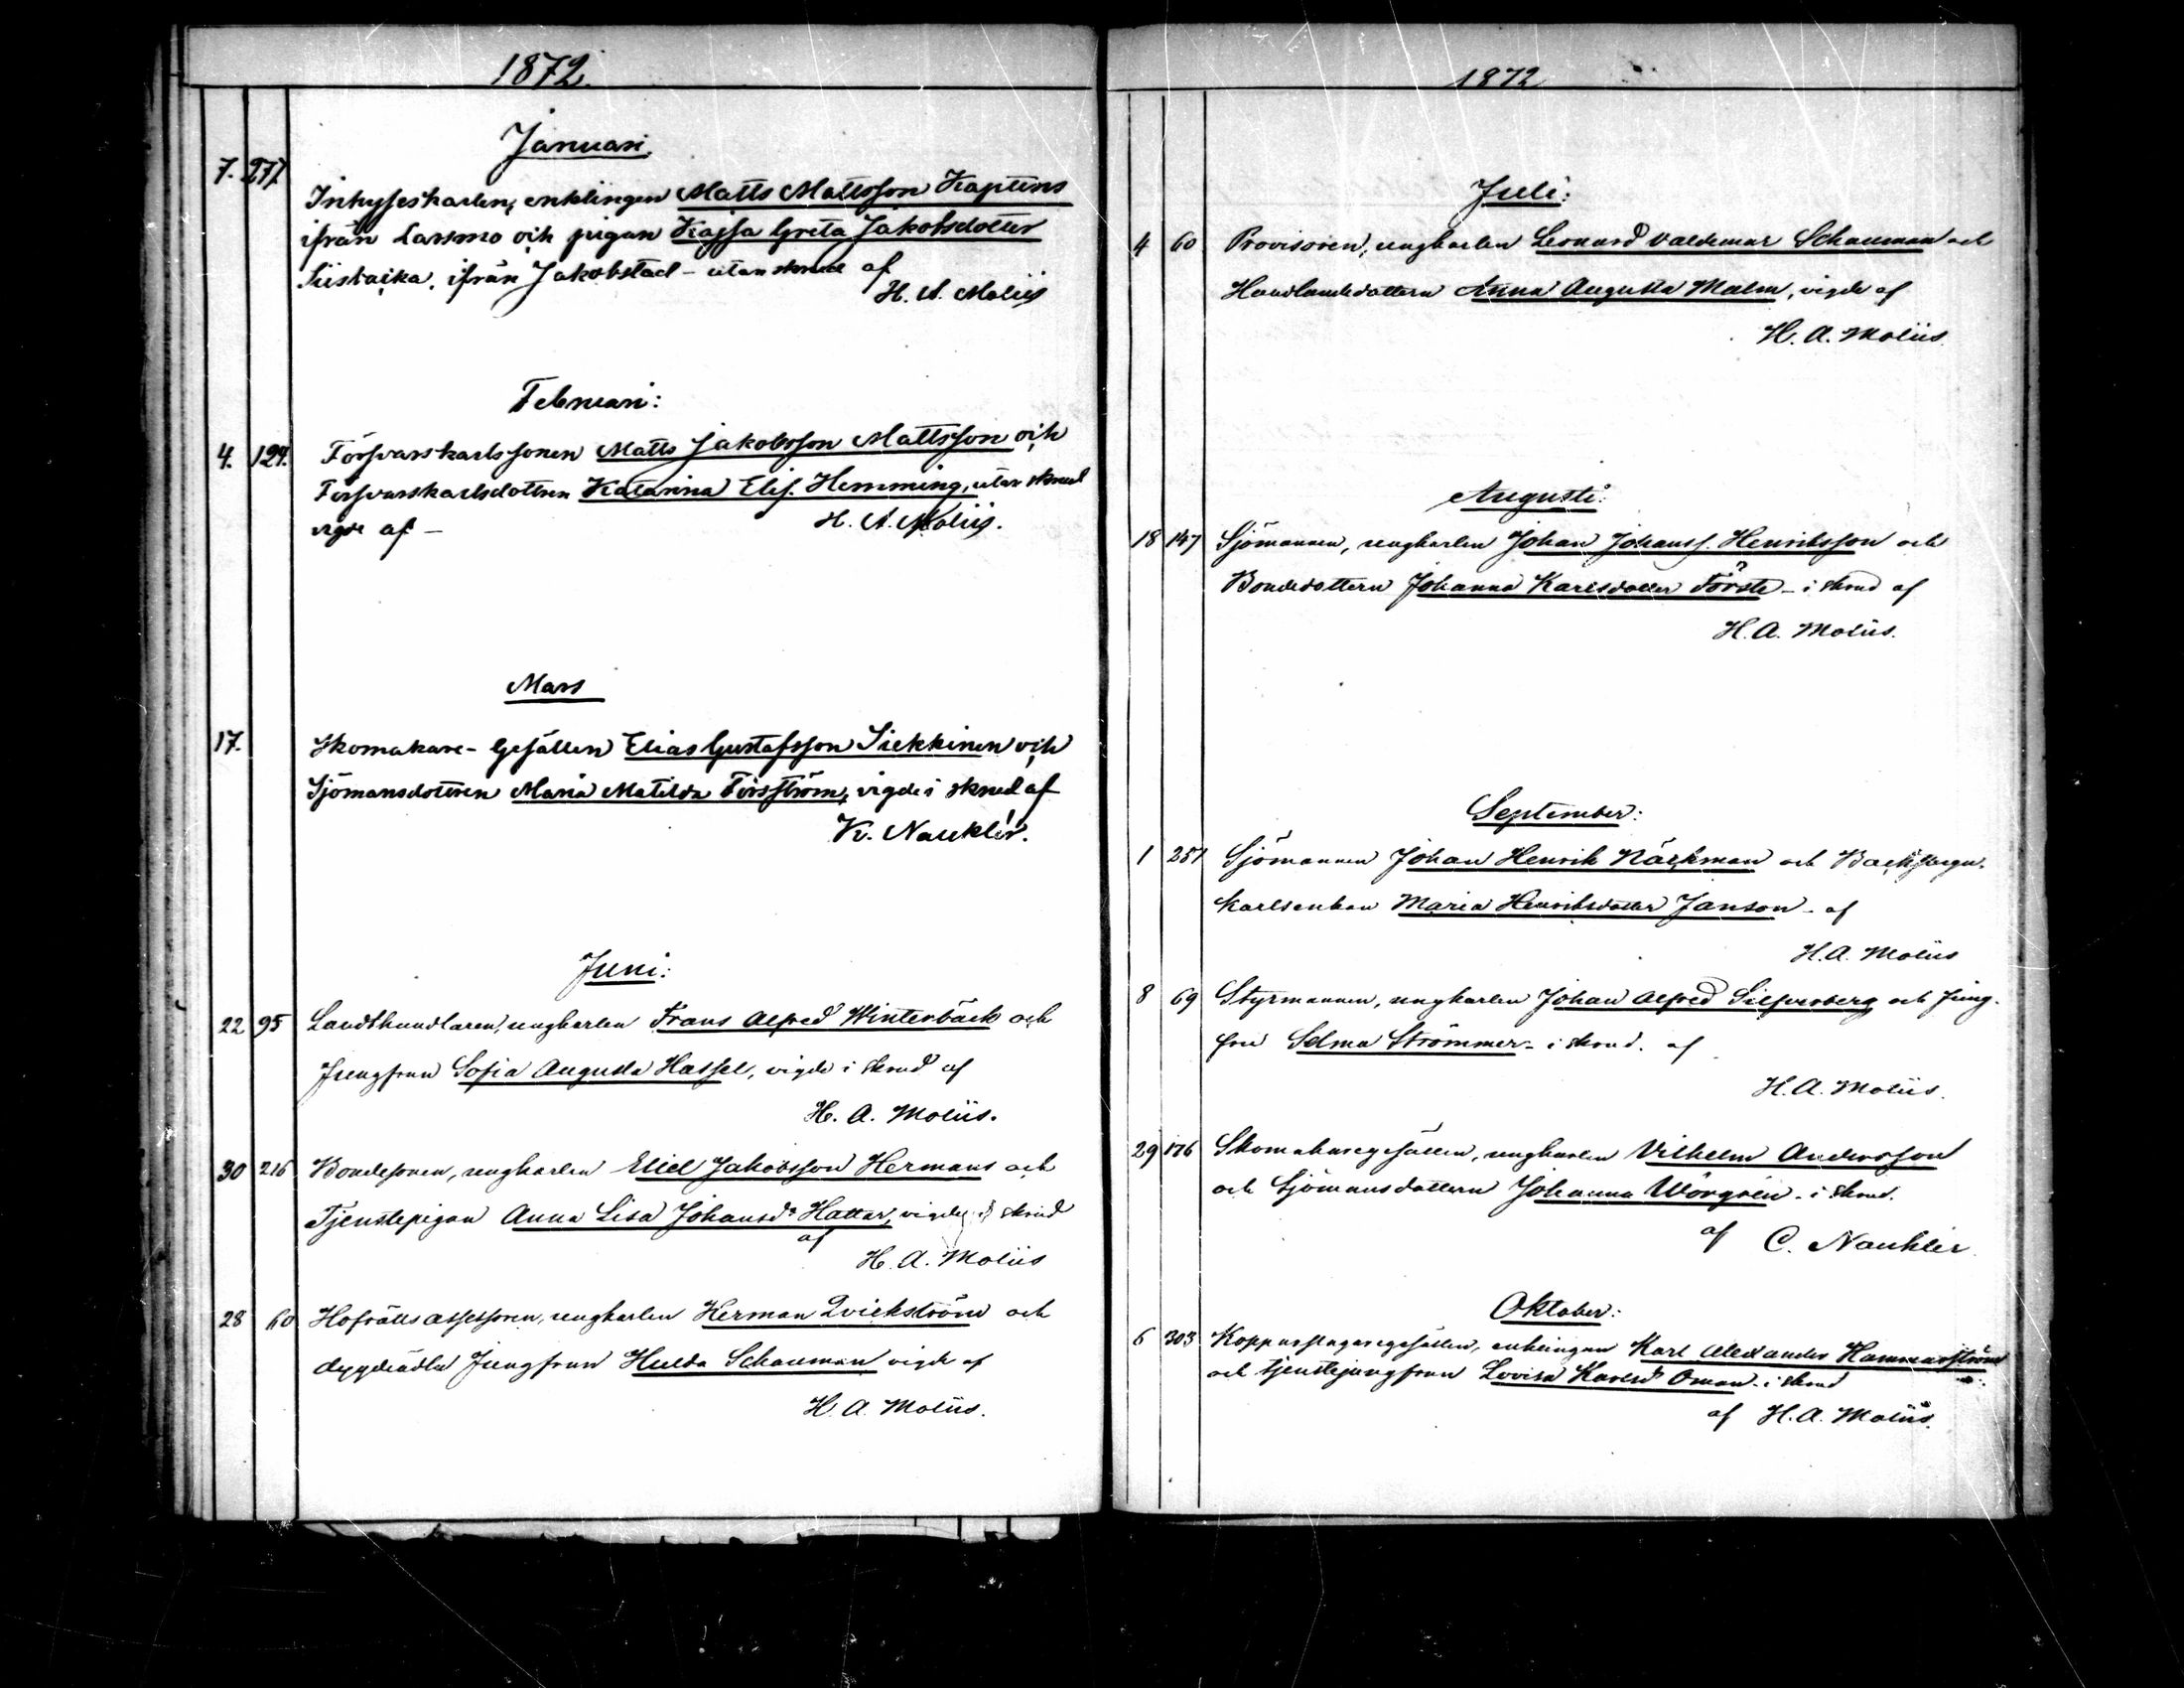 1872.
Januari.
7. 277. Inhyseskarlen, enklingen Matts Mattsson Kaptens
ifrån Larsmo och pigan Kajsa Greta Jakobsdotter
Siistaika, ifrån Jakobstad - utan skrud af
H. A. Moliis
Februari:
4. 124. Försvarskarlssonen Matts Jakobsson Mattsson och
Försvarskarlsdottren Katarina Elis. Hemming, utan skrud
vigde af -
H. A. Moliis.
Mars
17. Skomakare-Gesällen Elias Gustafsson Siekkinen och
Sjömansdottren Maria Matilda Forsström, vigde i skrud af
K. Nauklér.
Juni:
22 95 Landthandlaren, ungkarlen Frans Alfred Winterbäck och
Jungfrun Sofia Augusta Hassel, vigde i skrud af
H. A. Moliis.
30 216 Bondesonen, ungkarlen Eliel Jakobsson Hermans och
Tjenstepigan Anna Lisa Johansdr Hattar, vigde i skrud
af
H. A. Moliis
28 60 Hofrätts assessoren, ungkarlen Herman Qvickström och
dygdeädla Jungfrun Hulda Schauman vigde af
H. A. Moliis.
1872
Juli:
4 60 Provisoren, ungkarlen Leonard Valdemar Schauman och
Handlandedottern Anna Augusta Malm, vigde af
H. A. Moliis
Augusti:
18 147 Sjömannen, ungkarlen Johan Johanss. Henriksson och
Bondedottern Johanna Karlsdotter Förste - i skrud af
H. A. Moliis.
September:
1 251 Sjömannen Johan Henrik Närkman och
karlsenkan Maria Henriksdotter Janson - af
H. A. Moliis
8 69 Styrmannen, ungkarlen Johan Alfred Silfverberg och Jung-
fru Selma Strömmer - i skrud. af
H. A. Moliis.
29 176 Skomakaregesällen, ungkarlen Vilhelm Andersson
och Sjömansdottern Johanna - i skrud.
af C. Nauklér.
Oktober:
6 303 Kopparslagaregesällen, enklingen Karl Alexander Hammarström
och tjenstejungfrun Lovisa Karlsdr Öman - i skrud
af H. A. Moliis.